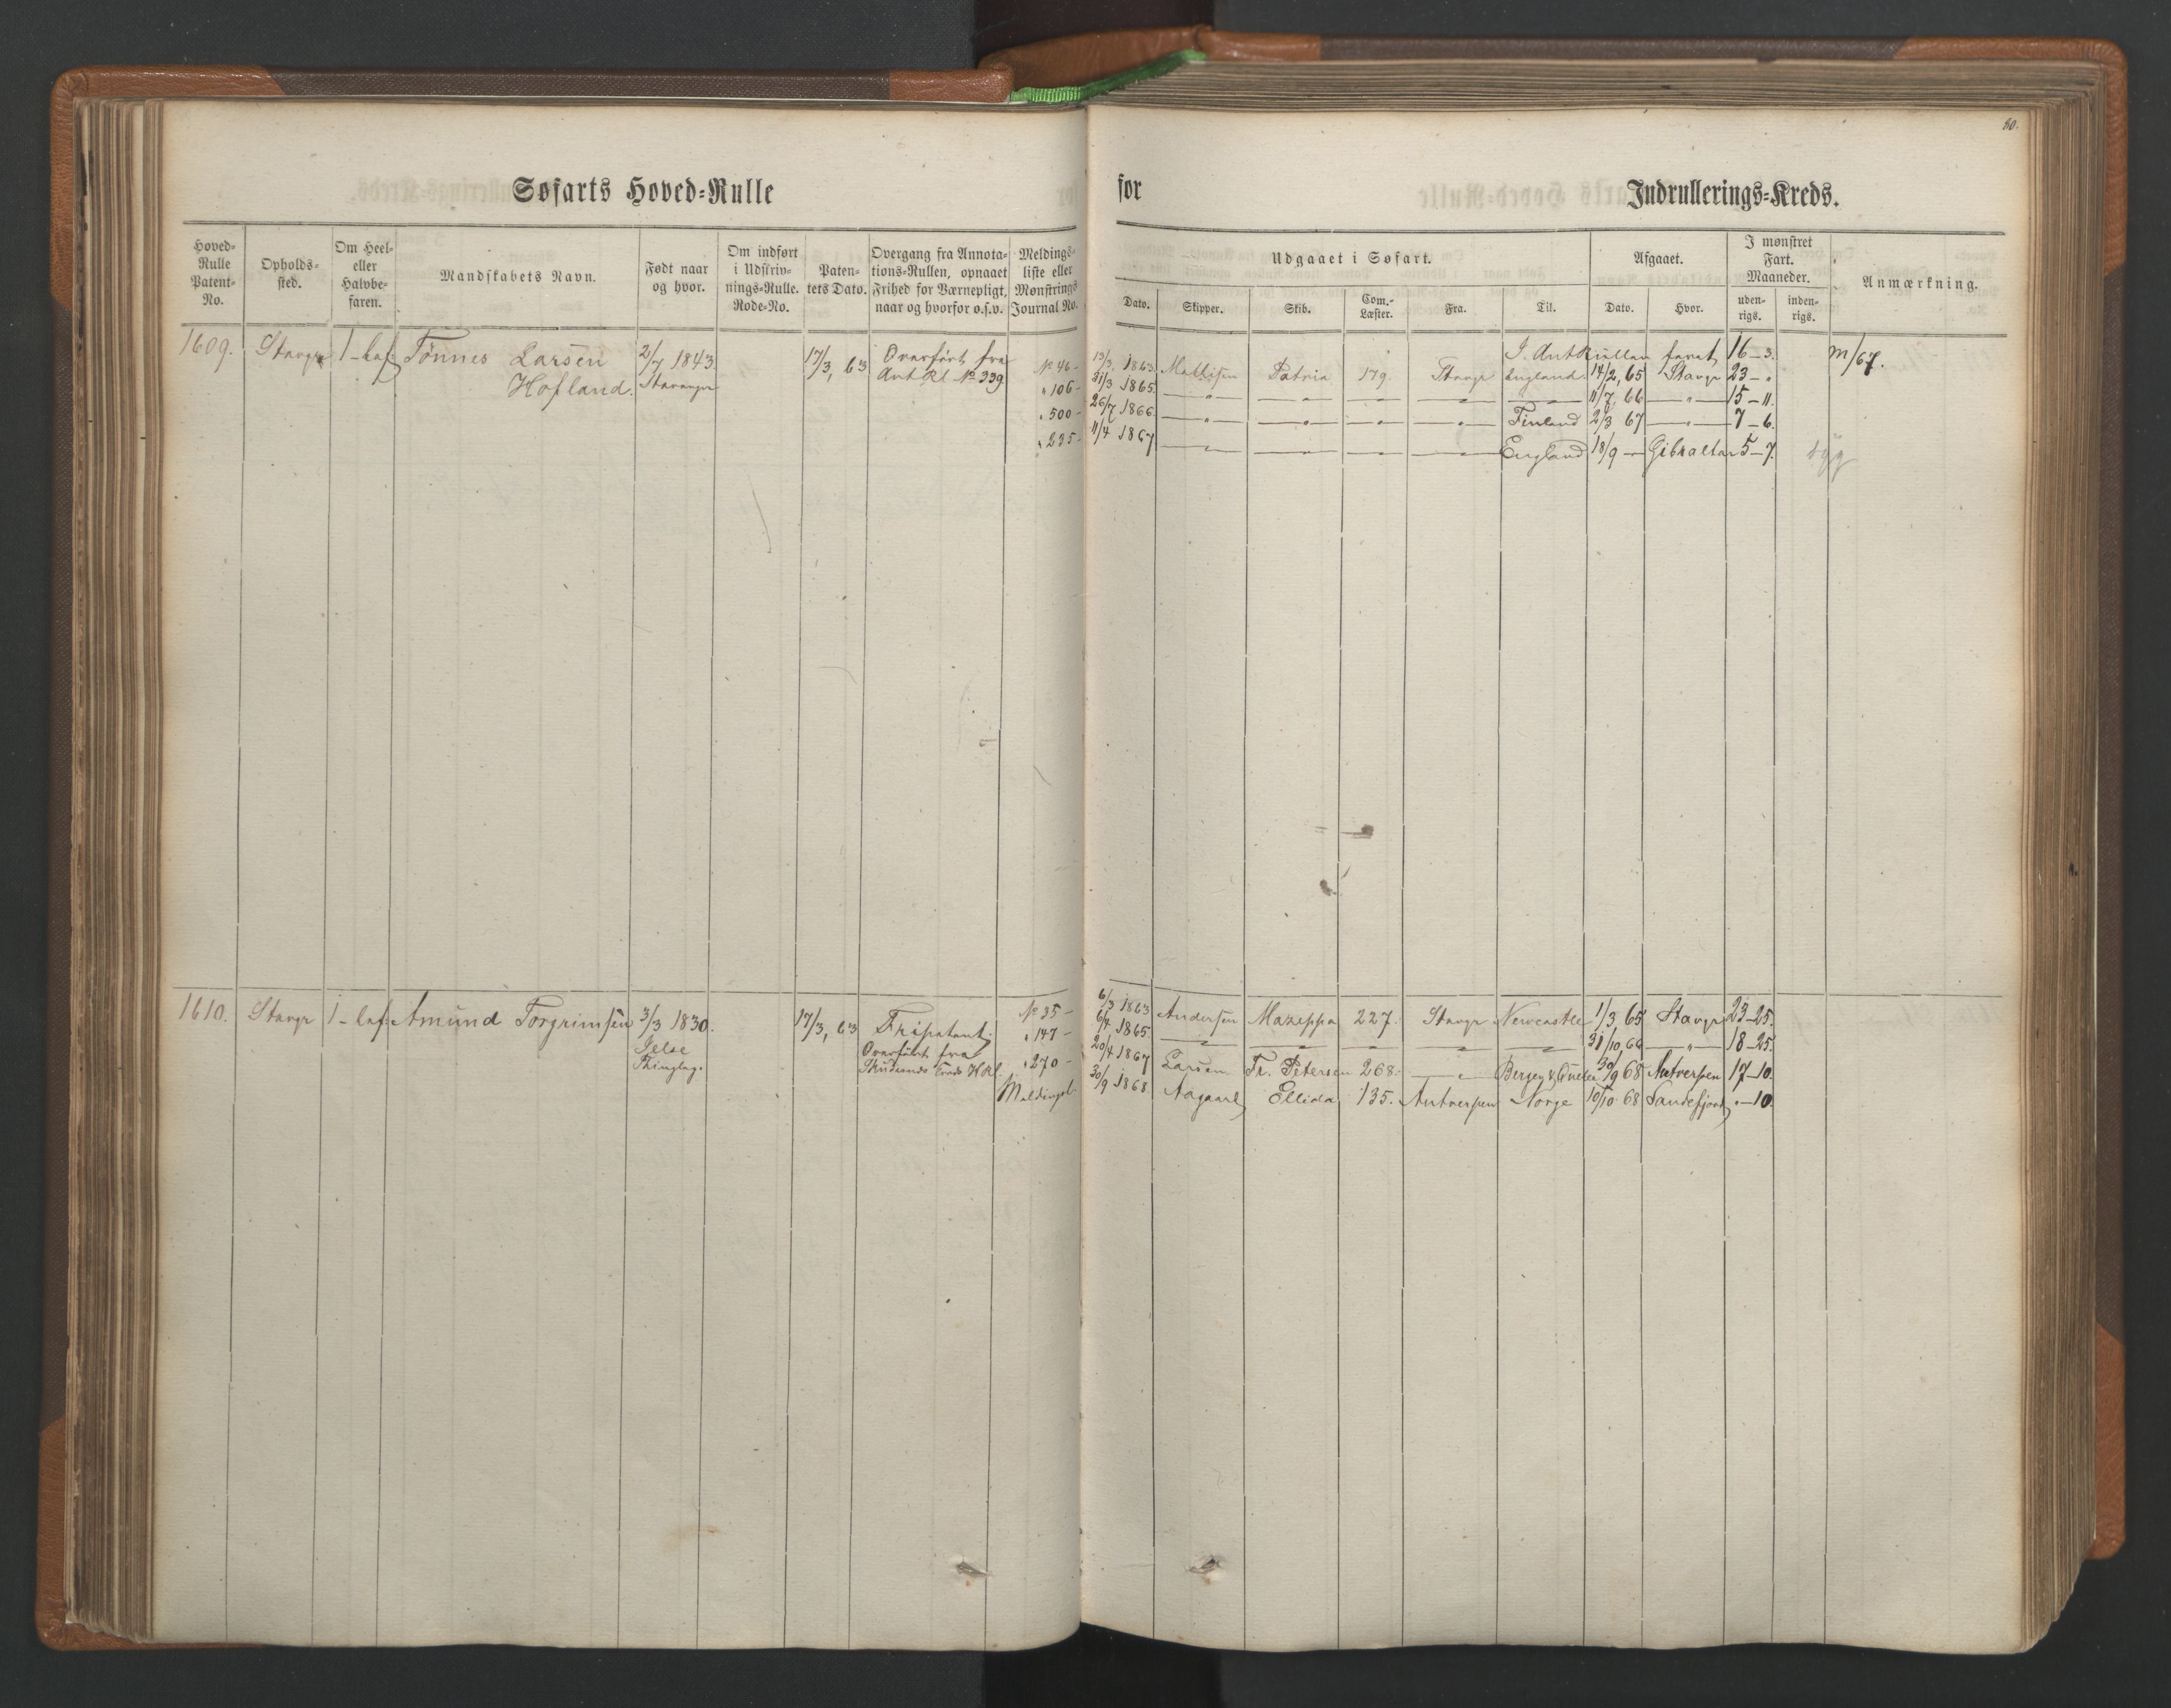 80.
Søfarts Hoved-Rulle for Indrullerings-Kreds.
Hoved-Rulle Patent-No.
Opholds-sted.
Om Heel- eller Halvbe-faren.
Mandskabets Navn.
Født naar og hvor.
Om indført i Udskriv-nings-Rulle. Rode-No.
Paten-tets Dato.
Overgang fra Annota-tions-Rullen, opnaaet Frihed for Værnepligt, naar og hvorfor o.s.v.
Meldings-liste eller Mønstrings Journal No.
Udgaaet i Søfart.
Dato. Skipper. Skib. Com.-Læster. Fra. Til.
Afgaaet.
Dato. Hvor.
I mønstret Fart. Maaneder.
uden-rigs. inden-rigs.
Anmærkning.
1609. Stavgr 1-bef: Tönnes Larsen 2/7 1843 17/3, 63 Overført fra
Hofland. Stavanger Ant Rl. № 339
I. Ant Rullen faret, 16-3. M/67.
№ 46- 13/3 1863 Mathisen Patria 179 Stavgr England 14/2, 65 Stavgr 23-"
" 106- 31/3 1865 —"— —"— —"— —"— —— 11/7, 66 —"— 15-11.
" 500- 26/7 1866 —"— —"— —"— —"— Finland 2/3 67 —"— 7-6.
" 235- 11/4 1867 —"— —"— —"— —"— England 18/9 — Gibraltar 5-7. syg
1610. Stavgr 1-bef: Amund Torgrimsen 3/3 1830. 17/3, 63 Fripatent.
Jelse Overført fra
Thinglag.
№ 35- 6/3 1863 Andersen Mazeppa 227. Stavgr Newcastle 1/3 65 Stavgr 23-25.
" 147- 6/4 1865. —"— —"— —"— —"— —"— 31/10, 66 —"— 18-25.
" 270- 20/4 1867 Larsen Fr. Petersen 268. —"— Bergen & 30/9 68 Antverpen 17-10.
Meldingsl. 30/9 1868 Aagaard Ellida 135. Antverpen Norge 10/10 68 Sandefjord "-10.